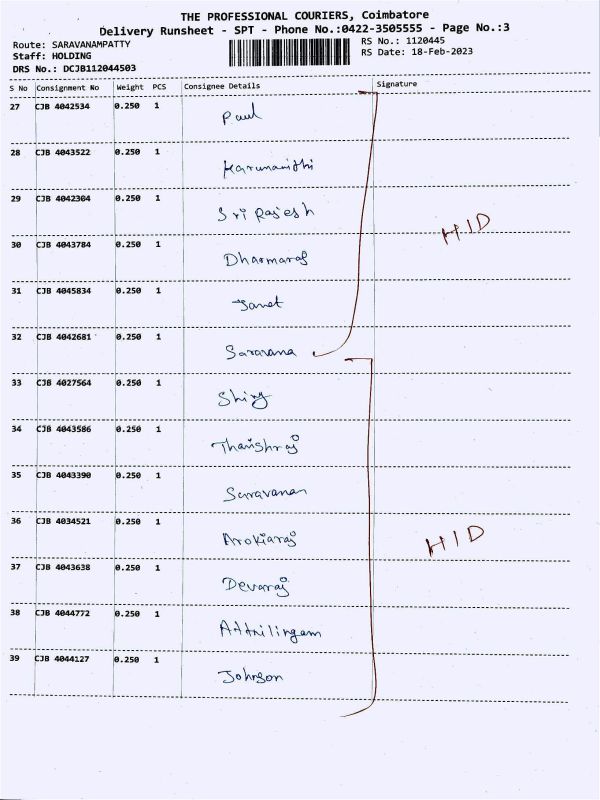 THE PROFESSIONAL COURIERS, Coimbatore
Delivery Runsheet - SPT - Phone No.:0422-3505555 - Page No.:3
Route: SARAVANAMPATTY
RS No.: 1120445
Staff: HOLDING
RS Date: 18-Feb-2023
DRS No.: DCJB112044503
S No Consignment No Weight PCS Consignee Details Signature
27 CJB 4042534 0.250 1 Paul
28 CJB 4043522 0.250 1 Karunanithi
29 CJB 4042304 0.250 1 Sri Rajesh
HID
30 CJB 4043784 0.250 1 Dharmaraj
31 CJB 4045834 0.250 1 Janet
32 CJB 4042681 0.250 1 Saravana
33 CJB 4027564 0.250 1
34 CJB 4043586 0.250 1
35 CJB 4043390 0.250 1 Saravanan
36 CJB 4034521 0.250 1 Arokiaraj
HID
37 CJB 4043638 0.250 1 Devaraj
38 CJB 4044772 0.250 1
39 CJB 4044127 0.250 1 Johnson